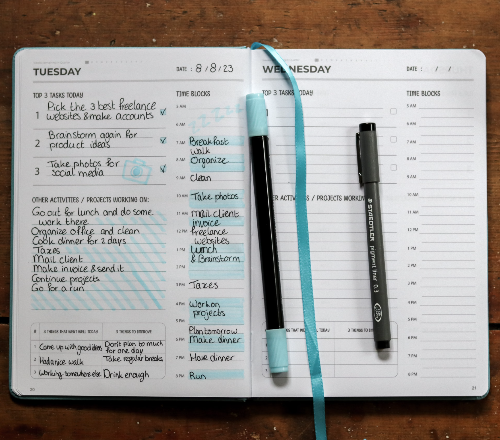 TUESDAY
DATE: 8/8/23
TOP 3 TASKS TODAY
1 Pick the 3 best freelance
websites & make accounts
2 Brainstorm again for
product ideas
3 Take photos for
social media
OTHER ACTIVITIES / PROJECTS WORKING ON:
Go out for lunch and do some
work there
Organize office and clean
Cook dinner for 2 days
Taxes
Mail client
Make invoice & send it
Continue projects
Go for a run
3 THINGS THAT WENT WELL TODAY
3 THINGS TO IMPROVE
Come up with good ideas
Don't plan to much
for one day
Had a nice walk
Take regular breaks
Working somewhere else
Drink enough
TIME BLOCKS
5 AM
6 AM
7 AM Breakfast
walk
8 AM Organize
9 AM Clean
10 AM Take photos
11 AM Mail clients
invoice
12 PM freelance
websites
1 PM Lunch
& Brainstorm
2 PM
3 PM Taxes
4 PM Work on
projects
5 PM
Plan tomorrow
6 PM Make dinner
7 PM Have dinner
8 PM Run
WEDNESDAY
DATE:
TOP 3 TASKS TODAY
OTHER ACTIVITIES / PROJECTS WORKING
3 THINGS THAT WENT WELL TODAY
3 THINGS TO IMPROVE
TIME BLOCKS
5 AM
6 AM
7 AM
8 AM
9 AM
10 AM
11 AM
12 PM
1 PM
2 PM
3 PM
4 PM
5 PM
6 PM
7 PM
8 PM
STAEDTLER
pigment liner 0.3